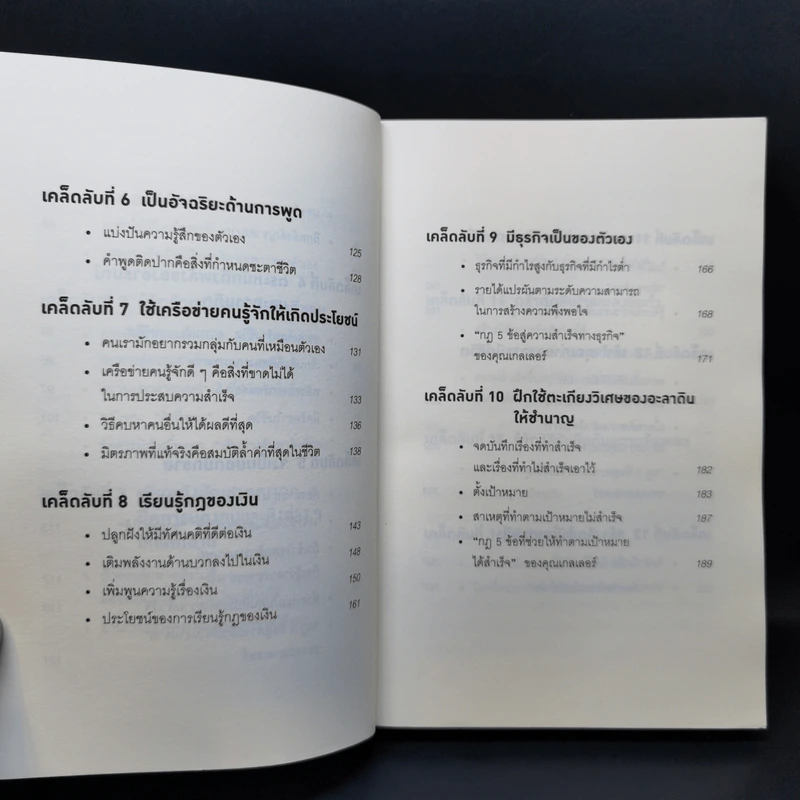 เคล็ดลับที่ 6 เป็นอัจฉริยะด้านการพูด
• แบ่งปันความรู้สึกของตัวเอง 125
• คำพูดติดปากคือสิ่งที่กำหนดชะตาชีวิต 128
เคล็ดลับที่ 7 ใช้เครือข่ายคนรู้จักให้เกิดประโยชน์
• คนเรามักอยากรวมกลุ่มกับคนที่เหมือนตัวเอง 131
• เครือข่ายคนรู้จักดี ๆ คือสิ่งที่ขาดไม่ได้
ในการประสบความสำเร็จ 133
• วิธีคบหาคนอื่นให้ได้ผลดีที่สุด 136
• มิตรภาพที่แท้จริงคือสมบัติล้ำค่าที่สุดในชีวิต 138
เคล็ดลับที่ 8 เรียนรู้กฎของเงิน
• ปลูกฝังให้มีทัศนคติที่ดีต่อเงิน 143
• เติมพลังงานด้านบวกลงไปในเงิน 148
• เพิ่มพูนความรู้เรื่องเงิน 150
• ประโยชน์ของการเรียนรู้กฎของเงิน 161
เคล็ดลับที่ 9 มีธุรกิจเป็นของตัวเอง
• ธุรกิจที่มีกำไรสูงกับธุรกิจที่มีกำไรต่ำ 166
• รายได้แปรผันตามระดับความสามารถ
ในการสร้างความพึงพอใจ 168
• "กฎ 5 ข้อสู่ความสำเร็จทางธุรกิจ"
ของคุณเกลเลอร์ 171
เคล็ดลับที่ 10 ฝึกใช้ตะเกียงวิเศษของอะลาดิน
ให้ชำนาญ
• จดบันทึกเรื่องที่ทำสำเร็จ
และเรื่องที่ทำไม่สำเร็จเอาไว้ 182
• ตั้งเป้าหมาย 183
• สาเหตุที่ทำตามเป้าหมายไม่สำเร็จ 187
• "กฎ 5 ข้อที่ช่วยให้ทำตามเป้าหมาย
ได้สำเร็จ" ของคุณเกลเลอร์ 189